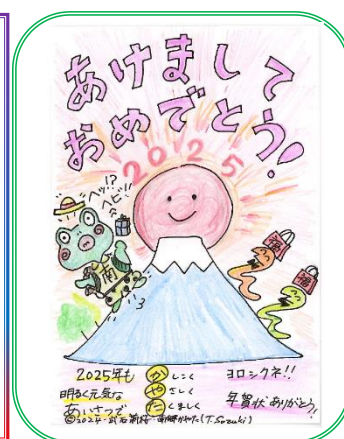 あけまして
おめでとう!
2025
ヘッ!?
ヘビ!!
南
福
福
2025年も
明るく元気な
あいさつで
かしこく
やさしく
たくましく
ヨロシクネ!!
年賀状ありがとう!
(T.Suzuki)